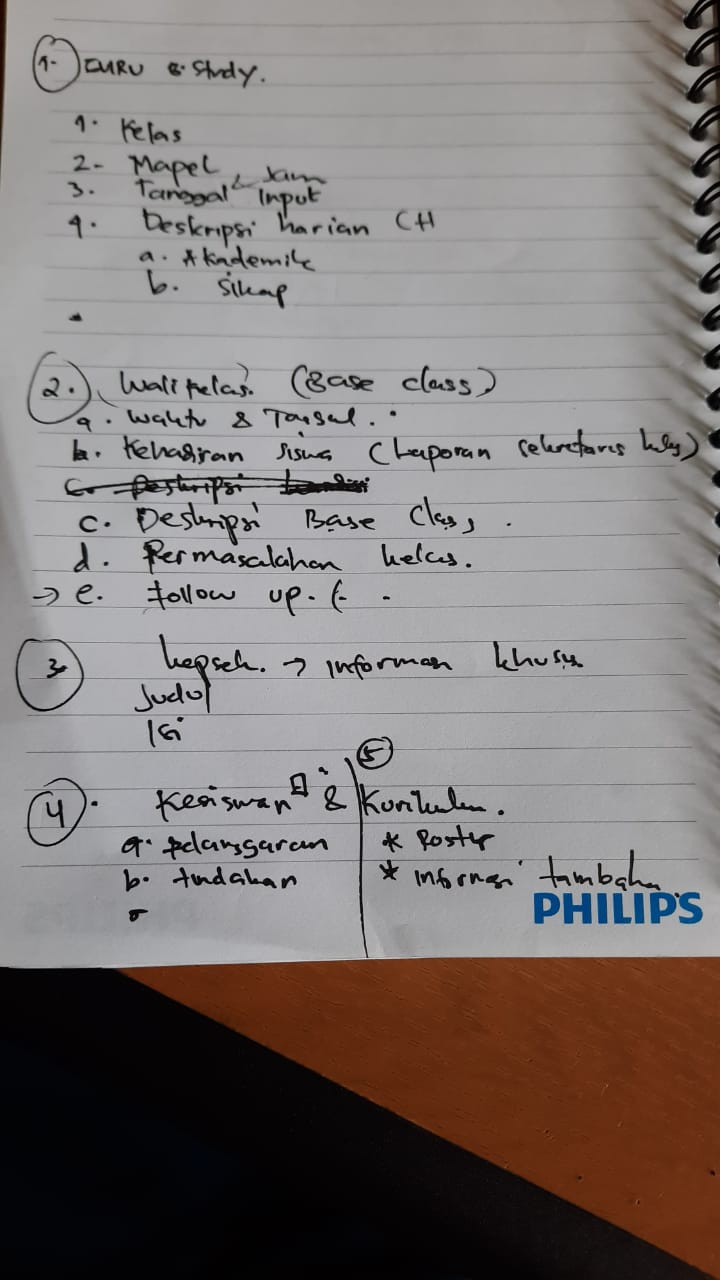 1. GURU B. Study.
1. Kelas
2. Mapel & Jam
3. Tanggal Input
4. Deskripsi harian CH
a. Akademik
b. Sikap
2. Wali kelas. (Base class)
a. Waktu & Tanggal.
b. Kehadiran siswa (Laporan sekretaris kelas)
c. Deskripsi
c. Deskripsi Base Class.
d. Permasalahan kelas.
→ e. follow up. (-
3. kepsek. → informasi khusus
Judul
Isi
4. Kesiswaan &
a. pelanggaran
b. tindakan
5
Kurikulum.
* Roster
* informasi tambahan
PHILIPS